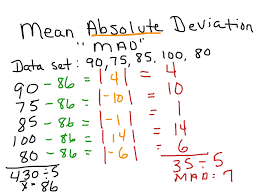 Mean Absolute Deviation
"MAD"
Data set: 90, 75, 85, 100, 80
90 - 86 = |4| = 4
75 - 86 = |-10| = 10
85 - 86 = |-1| = 1
100 - 86 = |14| = 14
80 - 86 = |-6| = 6
430 ÷ 5 35 ÷ 5
x̄ = 86 MAD = 7